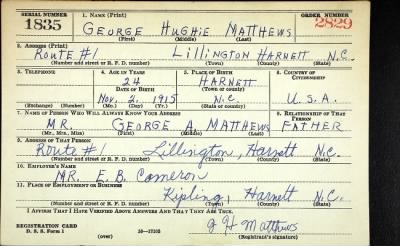 SERIAL NUMBER 1. NAME (Print) ORDER NUMBER
1835 GEORGE HUGHIE MATTHEWS 2829
(First) (Middle) (Last)
2. ADDRESS (Print)
ROUTE #1 LILLINGTON HARNETT N.C.
(Number and street or R. F. D. number) (Town) (County) (State)
3. TELEPHONE 4. AGE IN YEARS 5. PLACE OF BIRTH 6. COUNTRY OF CITIZENSHIP
24 HARNETT
DATE OF BIRTH (Town or county)
Nov. 2, 1915 N.C. U.S.A.
(Exchange) (Number) (Mo.) (Day) (Yr.) (State or country)
7. NAME OF PERSON WHO WILL ALWAYS KNOW YOUR ADDRESS 8. RELATIONSHIP OF THAT PERSON
MR. GEORGE A MATTHEWS FATHER
(Mr., Mrs., Miss) (First) (Middle) (Last)
9. ADDRESS OF THAT PERSON
Route #1 Lillington, Harnett N.C.
(Number and street or R. F. D. number) (Town) (County) (State)
10. EMPLOYER'S NAME
MR. E. B. Cameron
11. PLACE OF EMPLOYMENT OR BUSINESS
Kipling, Harnett N.C.
(Number and street or R. F. D. number) (Town) (County) (State)
I AFFIRM THAT I HAVE VERIFIED ABOVE ANSWERS AND THAT THEY ARE TRUE.
REGISTRATION CARD G H Matthews
D. S. S. Form 1 (over) 16—17105 (Registrant's signature)